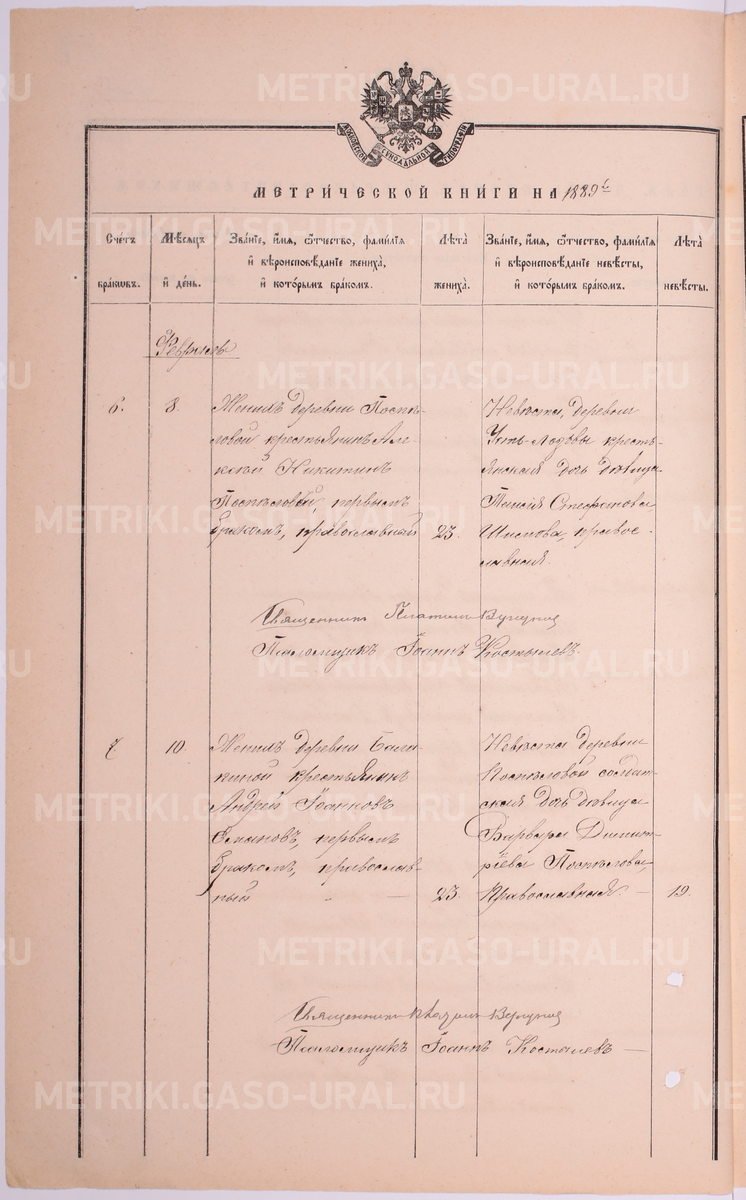 МОСКОВСКОЙ СУНОДАЛЬНОЙ ТИПОГРАФІИ
МЕТРИ́ЧЕСКОЙ КНИ́ГИ НА 1889 г.
Сче́тъ бра́кѡвъ.
Мѣ́сѧцъ и҆ де́нь.
Зва́нїе, и҆́мѧ, ѻ҆́тчество, фами́лїѧ и҆ вѣроисповѣ́данїе жениха̀, и҆ кото́рымъ бра́комъ.
Лѣ́та жениха̀.
Зва́нїе, и҆́мѧ, ѻ҆́тчество, фами́лїѧ и҆ вѣроисповѣ́данїе невѣ́сты, и҆ кото́рымъ бра́комъ.
Лѣ́та невѣ́сты.
Февраль
6.
8.
Женихъ деревни Поспѣ-
ловой крестьянинъ Але-
ксѣй Никитинъ
Поспѣловъ, первымъ
бракомъ, православный
23.
Невѣста, деревни
Усть-Лодовы кресть-
янская дочь дѣвица
Таисія Стефанова
православная.
Священникъ Платонъ
Псаломщикъ Іоаннъ Костылевъ.
7
10.
Женихъ деревни Бала-
киной крестьянинъ
Андрей Іоанновъ
первымъ
бракомъ, православ-
ный
23.
Невѣста деревни
Поспѣловой солдат-
ская дочь дѣвица
Варвара Димит-
ріева Поспѣлова,
православная.
19.
Священникъ Платонъ
Псаломщикъ Іоаннъ Костылевъ
METRIKI.GASO-URAL.RU